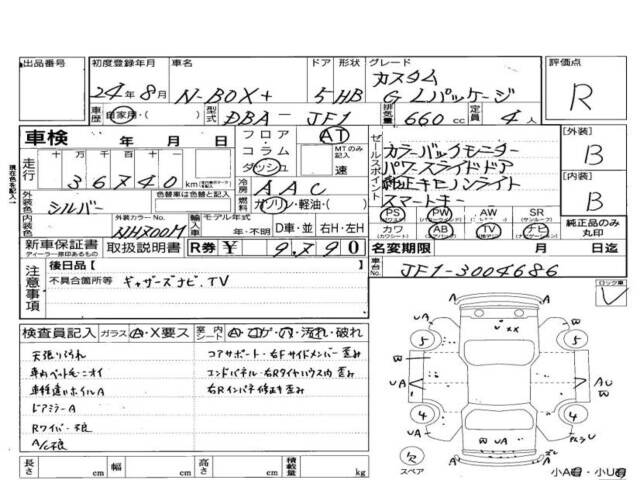 出品番号 初度登録年月 車名 ドア 形状 グレード 評価点
24年8月 N-BOX+ 5 HB カスタム
G Lパッケージ R
車歴 自家用・( ) 型式 DBA-JF1 排気量 660cc 定員 4人
車検 年 月 日 フロア AT セールスポイント カラーバックモニター [外装]
コラム MTのみ記入 パワースライドドア B
走行 十万 万 千 百 十 36740km ダッシュ 速 純正キセノンライト [内装]
スマートキー B
外装色 シルバー 色替車は色替と記入 冷房 AAC
燃料 ガソリン・軽油・( ) PS PW AW SR
内装色 外装カラーNo. NH700M 輸入車 モデル年式 年・不明 D車・並 右H・左H カワ AB TV ナビ 純正品のみ丸印
新車保証書 取扱説明書 R券 ¥ 9,790 名変期限 月 日迄
ディーラー捺印あるもの
車台No. JF1-3004686
注意事項 後日品[ ]
不具合箇所等 ギャザーズナビ.TV ロック車
検査員記入 ガラス A・X要ス 室内シート A・コゲ・穴・汚れ・破れ
天張りよごれ コアサポート・右Fサイドメンバー歪み
車内ペット毛・ニオイ エンドパネル・右Rタイヤハウス内歪み
車種違いホイルA 右Rインパネ修正キ歪み
ドアミラーA
Rワイパー不良
A/C不良
長さ cm 幅 cm 高さ cm 積載量 kg
5 5
UA AU
4 4
UA
W UA
スペア
小A・小U